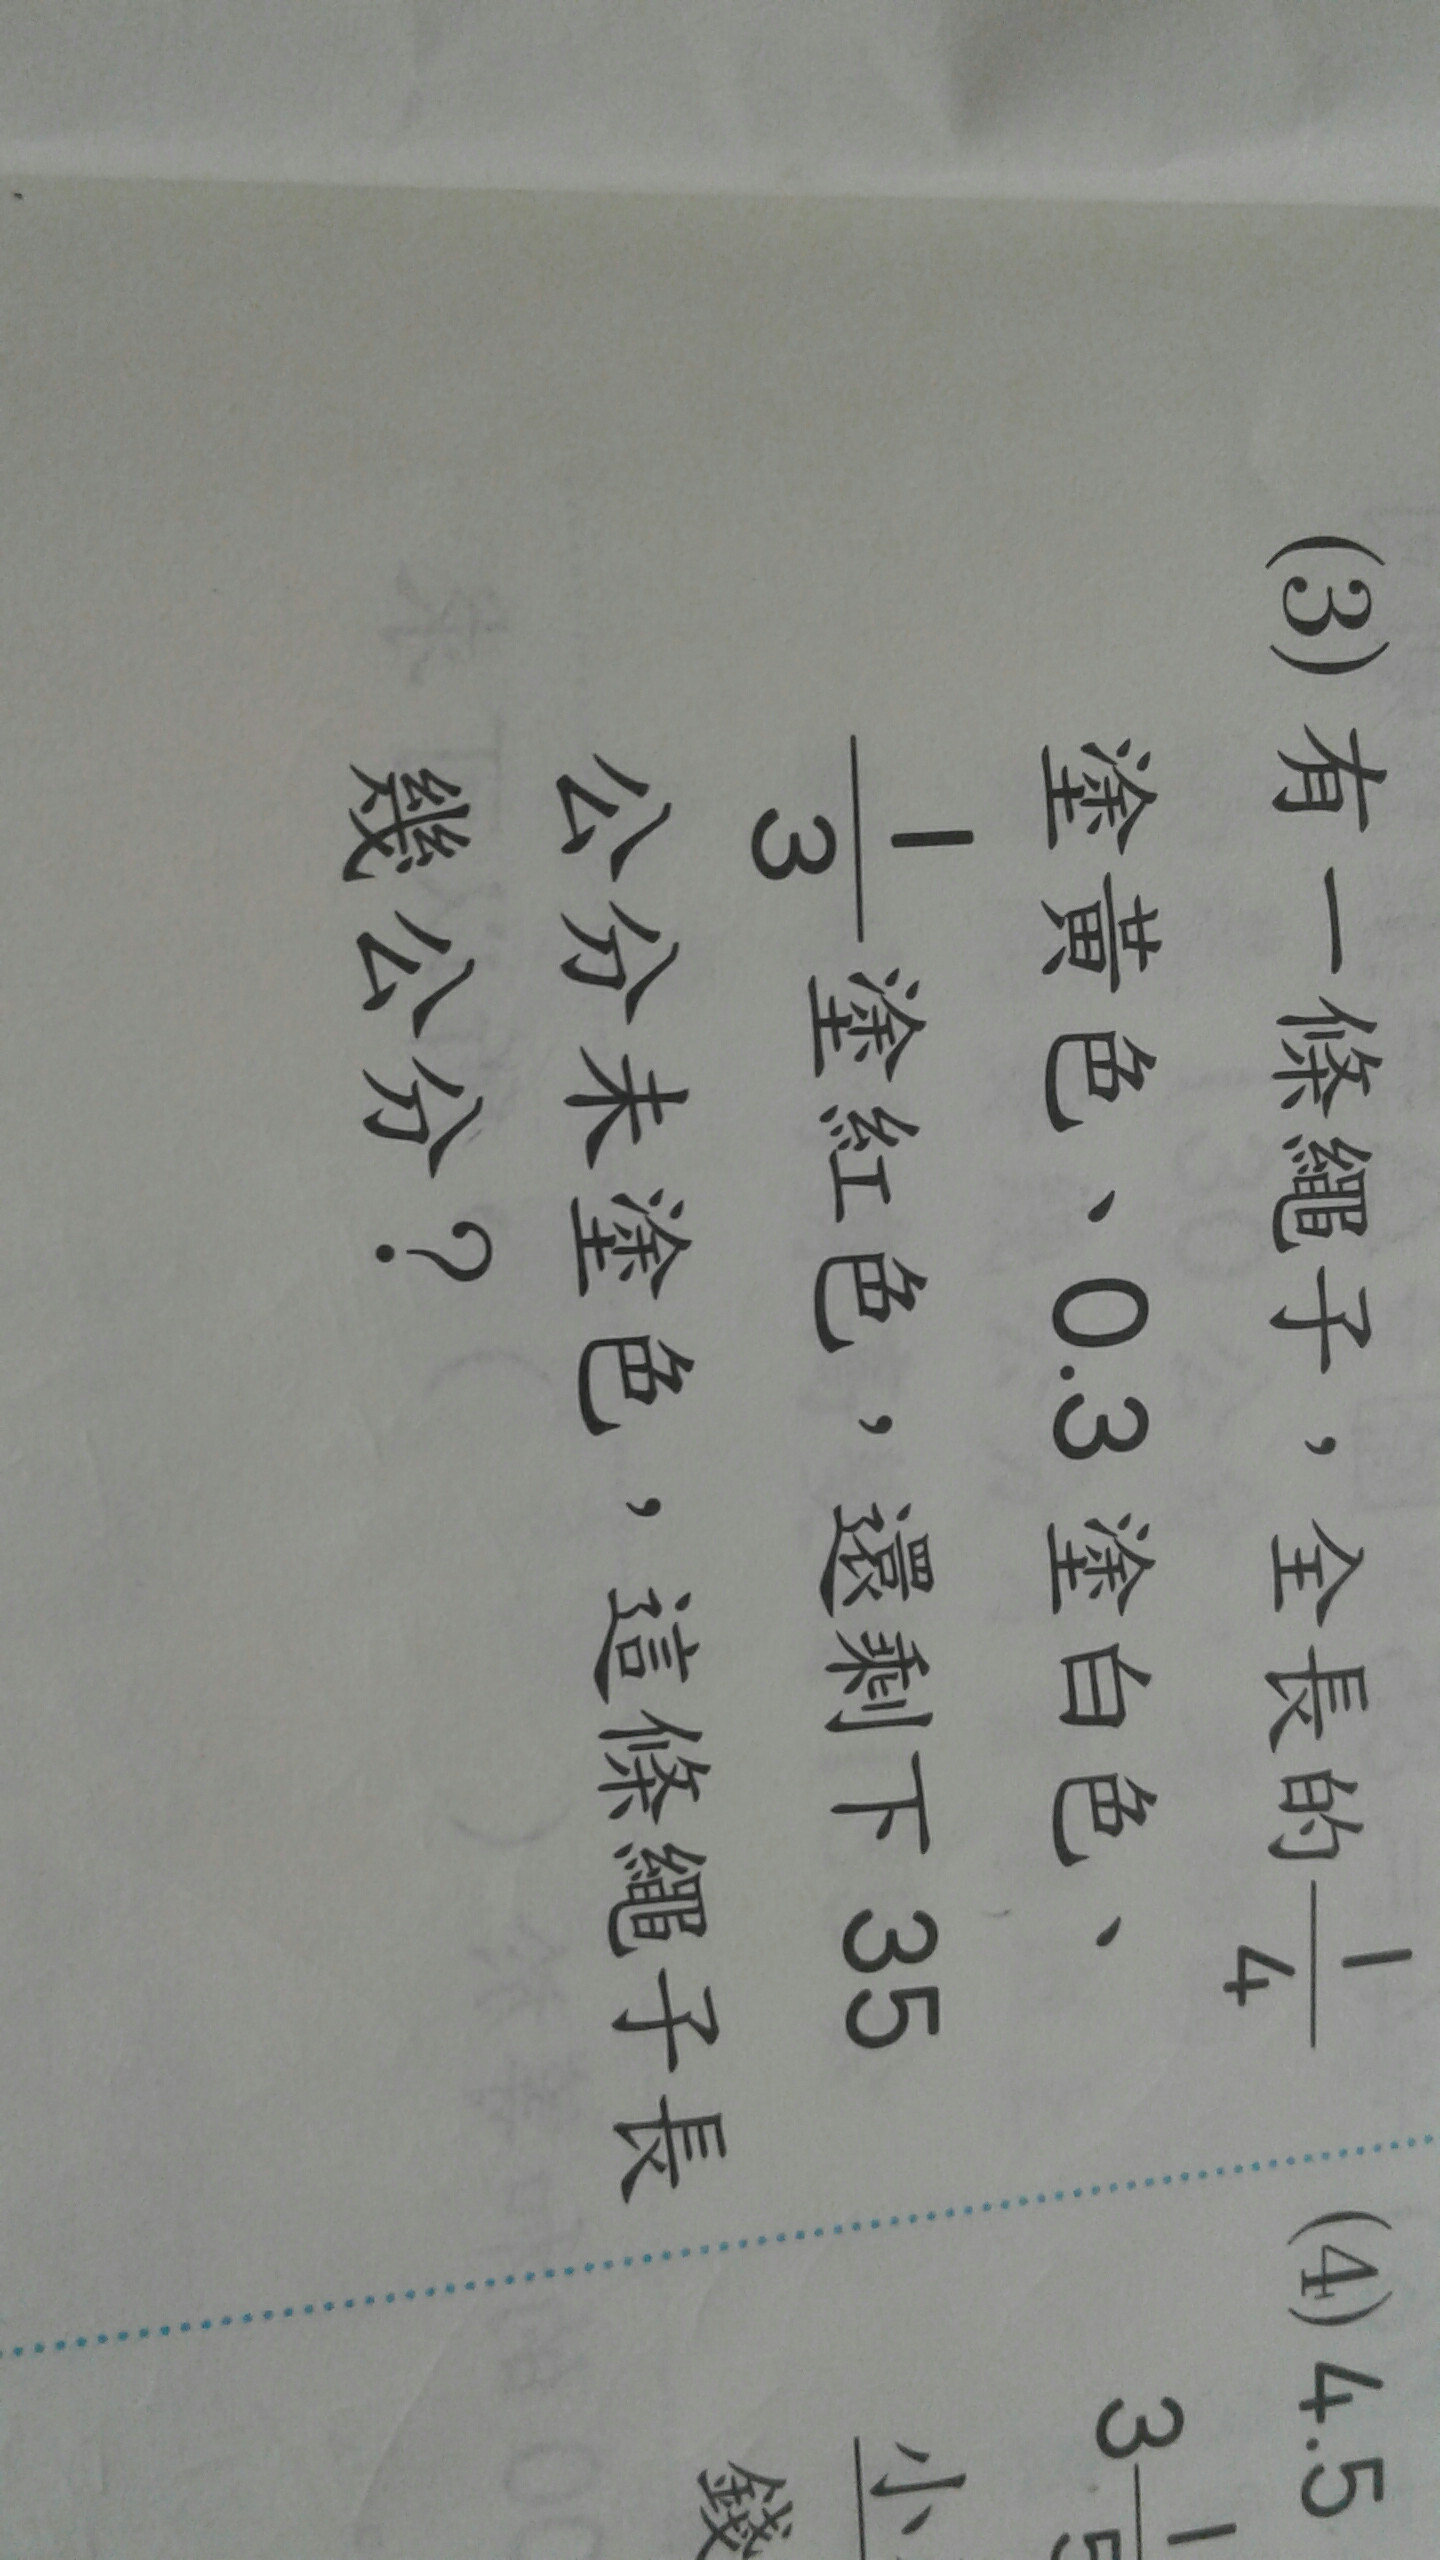 (3) 有一條繩子，全長的 1/4
塗黃色、0.3 塗白色、
1/3 塗紅色，還剩下 35
公分未塗色，這條繩子長
幾公分？
(4) 4.5
3 1/5
小
錢